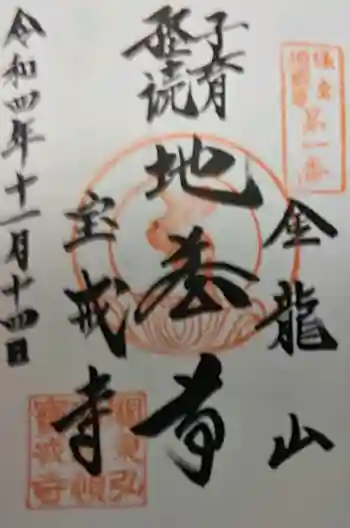 鎌倉
地蔵尊
第一番
金龍山
子育
経読
地蔵尊
宝戒寺
令和四年十一月十四日